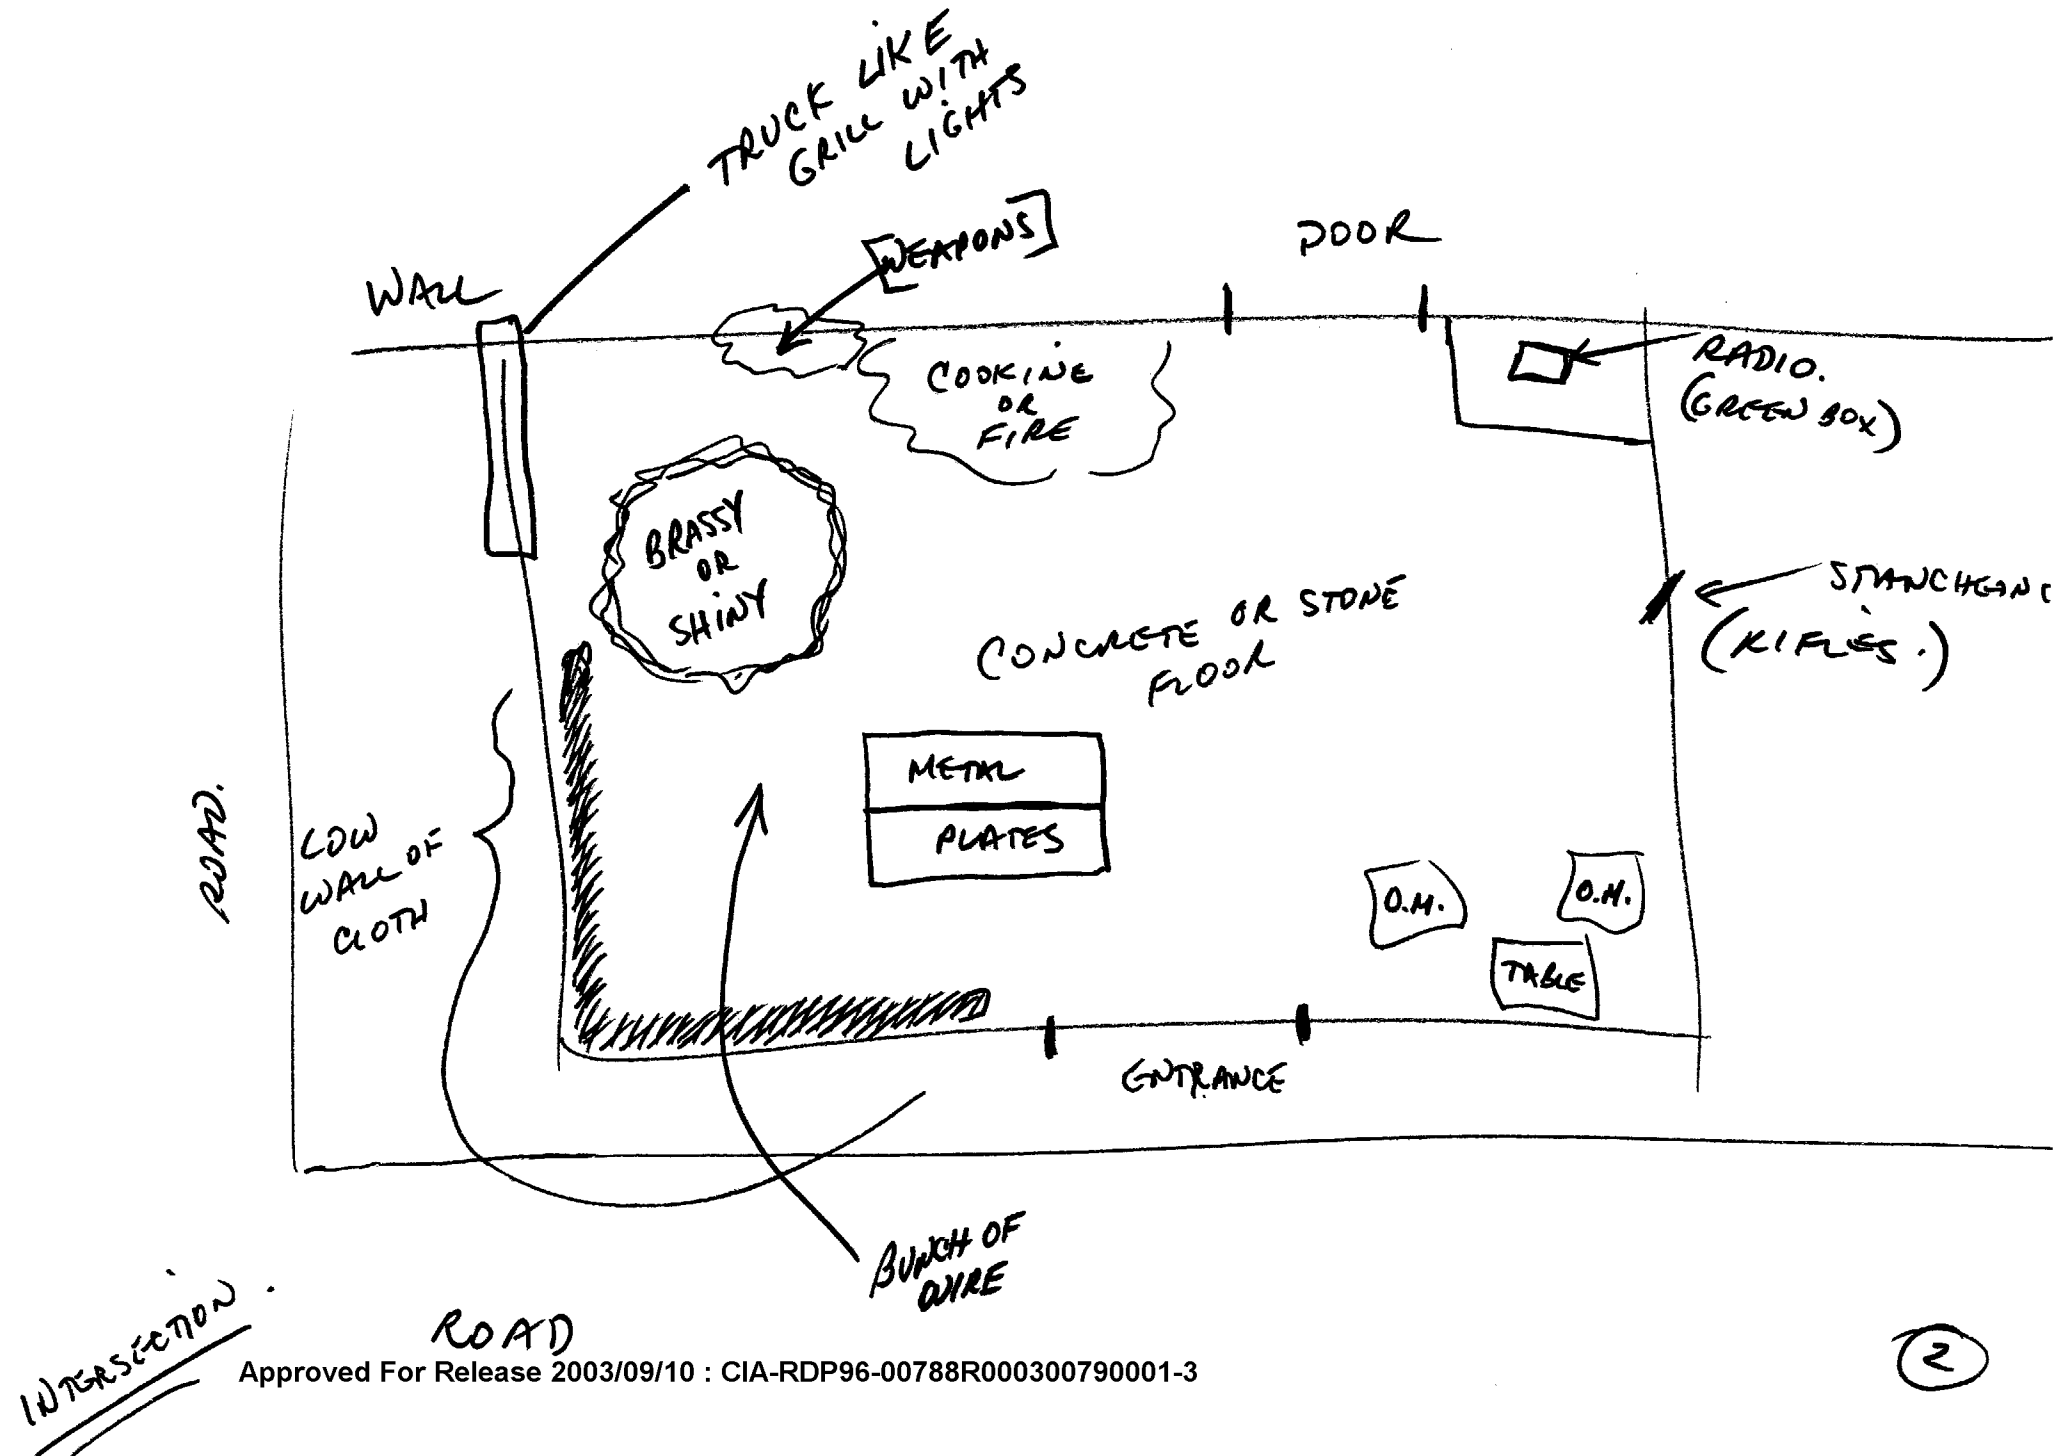 TRUCK LIKE
GRILL WITH
LIGHTS
[WEAPONS]
DOOR
WALL
RADIO.
(GREEN BOX)
COOKING
OR
FIRE
BRASSY
OR
SHINY
CONCRETE OR STONE
FLOOR
(RIFLES.)
METAL
PLATES
ROAD.
LOW
WALL OF
CLOTH
O.M.
O.M.
TABLE
ENTRANCE
BUNCH OF
WIRE
INTERSECTION.
ROAD
Approved For Release 2003/09/10 : CIA-RDP96-00788R000300790001-3
2